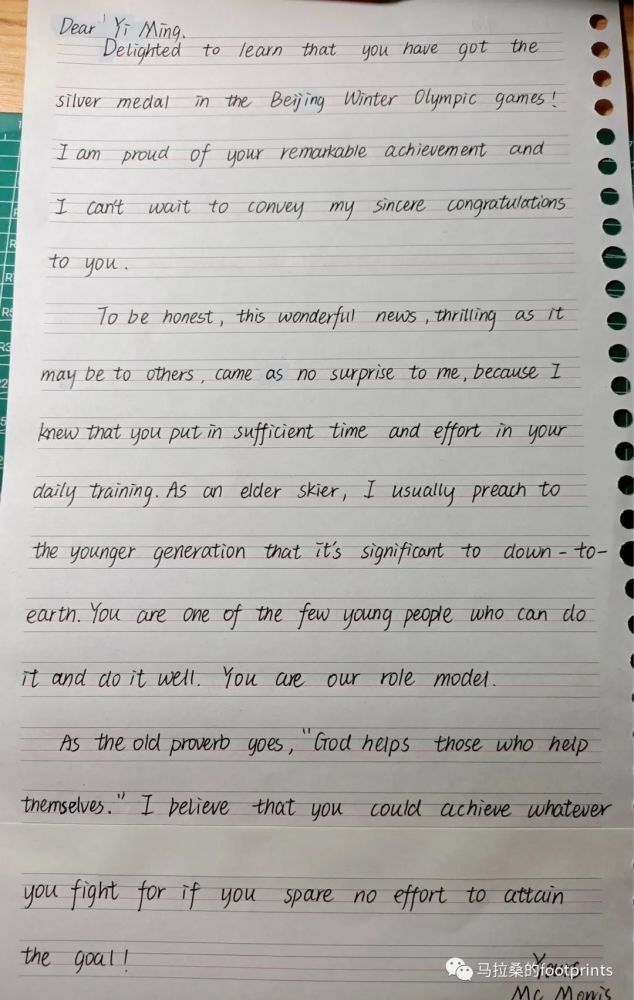 Dear Yi Ming.
Delighted to learn that you have got the
silver medal in the Beijing Winter Olympic games!
I am proud of your remarkable achievement and
I can't wait to convey my sincere congratulations
to you.
To be honest, this wonderful news, thrilling as it
may be to others, came as no surprise to me, because I
knew that you put in sufficient time and effort in your
daily training. As an elder skier, I usually preach to
the younger generation that it's significant to down-to-
earth. You are one of the few young people who can do
it and do it well. You are our role model.
As the old proverb goes, "God helps those who help
themselves." I believe that you could achieve whatever
you fight for if you spare no effort to attain
the goal!
Yours
马拉桑的footprints
Mc Monis